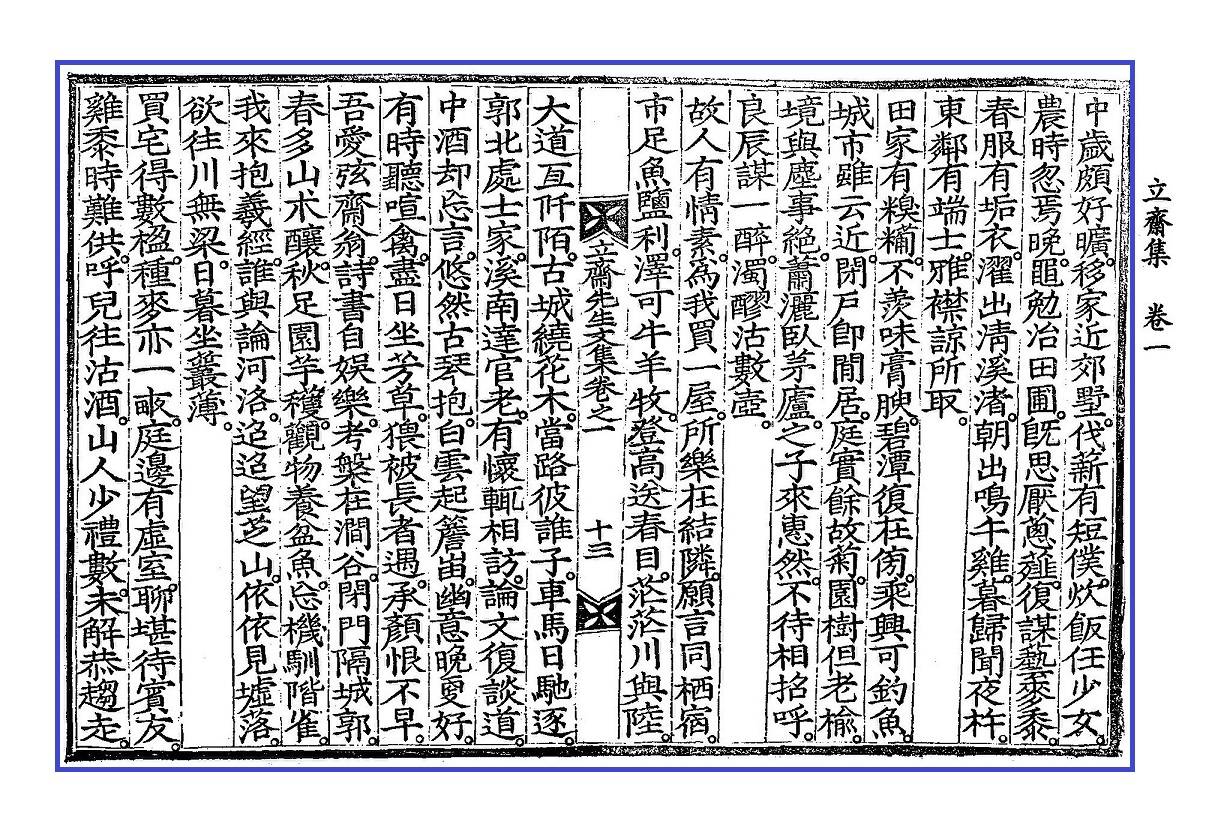 立齋集　卷一
中歲頗好曠。移家近郊墅。伐薪有短僕。炊飯任少女。
農時忽焉晩。黽勉冶田圃。旣思厭蔥薤。復謀藝麥黍。
春服有垢衣。濯出淸溪渚。朝出鳴午雞。暮歸聞夜杵。
東鄰有端士。雅襟諒所取。
田家有糗糒。不羨味膏腴。碧潭復在傍。乘興可釣魚。
城市雖云近。閉戶卽閒居。庭實餘故菊。園樹但老楡。
境與塵事絶。蕭灑臥茅廬。之子來惠然。不待相招呼。
良辰謀一醉。濁醪沽數壺。
故人有情素。爲我買一屋。所樂在結隣。願言同栖宿。
市足魚鹽利。澤可牛羊牧。登高送春目。茫茫川與陸。
立齋先生文集卷之一
十三
大道亙仟陌。古城繞花木。當路彼誰子。車馬日馳逐。
郭北處士家。溪南達官老。有懷輒相訪。論文復談道。
中酒却忘言。悠然古琴抱。白雲起簷甾。幽意晩更好。
有時聽喧禽。盡日坐芳草。猥被長者遇。承顏恨不早。
吾愛弦齋翁。詩書自娛樂。考槃在澗谷。閉門隔城郭。
春多山朮釀。秋足園芋穫。觀物養盆魚。忘機馴階雀。
我來抱羲經。誰與論河洛。迢迢望芝山。依依見墟落。
欲往川無梁。日暮坐叢薄。
買宅得數楹。種麥亦一畝。庭邊有虛室。聊堪待賓友。
雞黍時難供。呼兒往沽酒。山人少禮數。未解恭趨走。